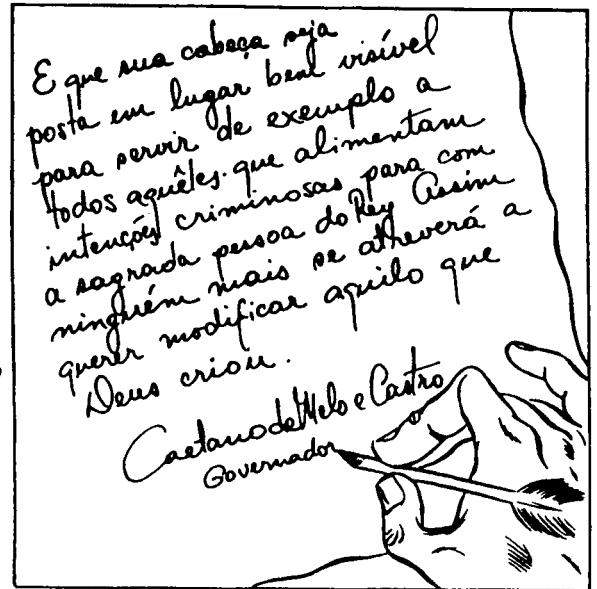 E que sua cabeça seja
posta em lugar bem visível
para servir de exemplo a
todos aquêles que alimentam
intenções criminosas para com
a sagrada pessoa do Rey Assim
ninguém mais se atreverá a
querer modificar aquilo que
Deus criou.
Caetano de Melo e Castro
Governador